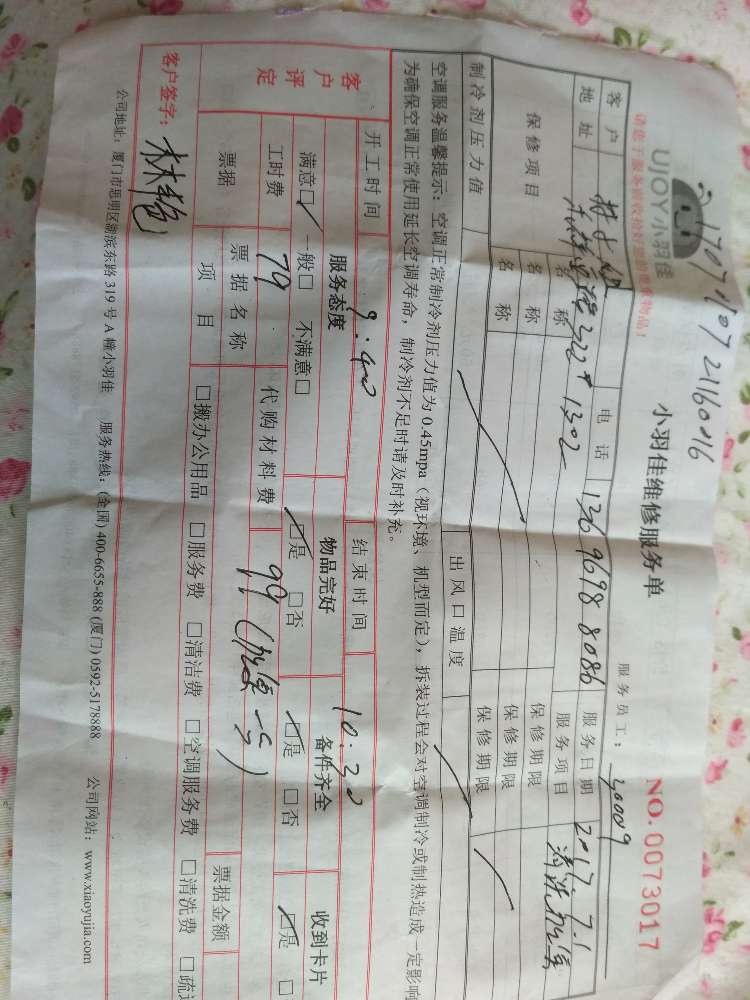 1707110721160016
UJOY小羽佳
小羽佳维修服务单
NO.0073017
请您于服务前收拾好您的贵重物品!
服务员工: 30009
客户 林女士 电话 136 9698 8086 服务日期 2017.7.1
地址 322# 1302 服务项目 清洗加氟
保修项目 名称 保修期限
名称 保修期限
名称 保修期限
制冷剂压力值 出风口温度
空调服务温馨提示:空调正常制冷剂压力值为 0.45mpa(视环境、机型而定),拆装过程会对空调制冷或制热造成一定影响
为确保空调正常使用延长空调寿命,制冷剂不足时请及时补充。
开工时间 9:40 结束时间 10:30
客户评定 服务态度 物品完好 备件齐全 收到卡片
满意☑ 一般□ 不满意□ ☑是 □否 ☑是 □否 ☑是 □
工时费 79 代购材料费 99(加氟一
票据 票据名称 票据金额
项目 □搬办公用品 □服务费 □清洁费 □空调服务费 □清洗费 □疏
客户签字: 林
公司地址:厦门市思明区湖滨东路 319 号 A 幢小羽佳 服务热线:(全国) 400-6655-888 (厦门) 0592-5178888 公司网站:www.xiaoyujia.com